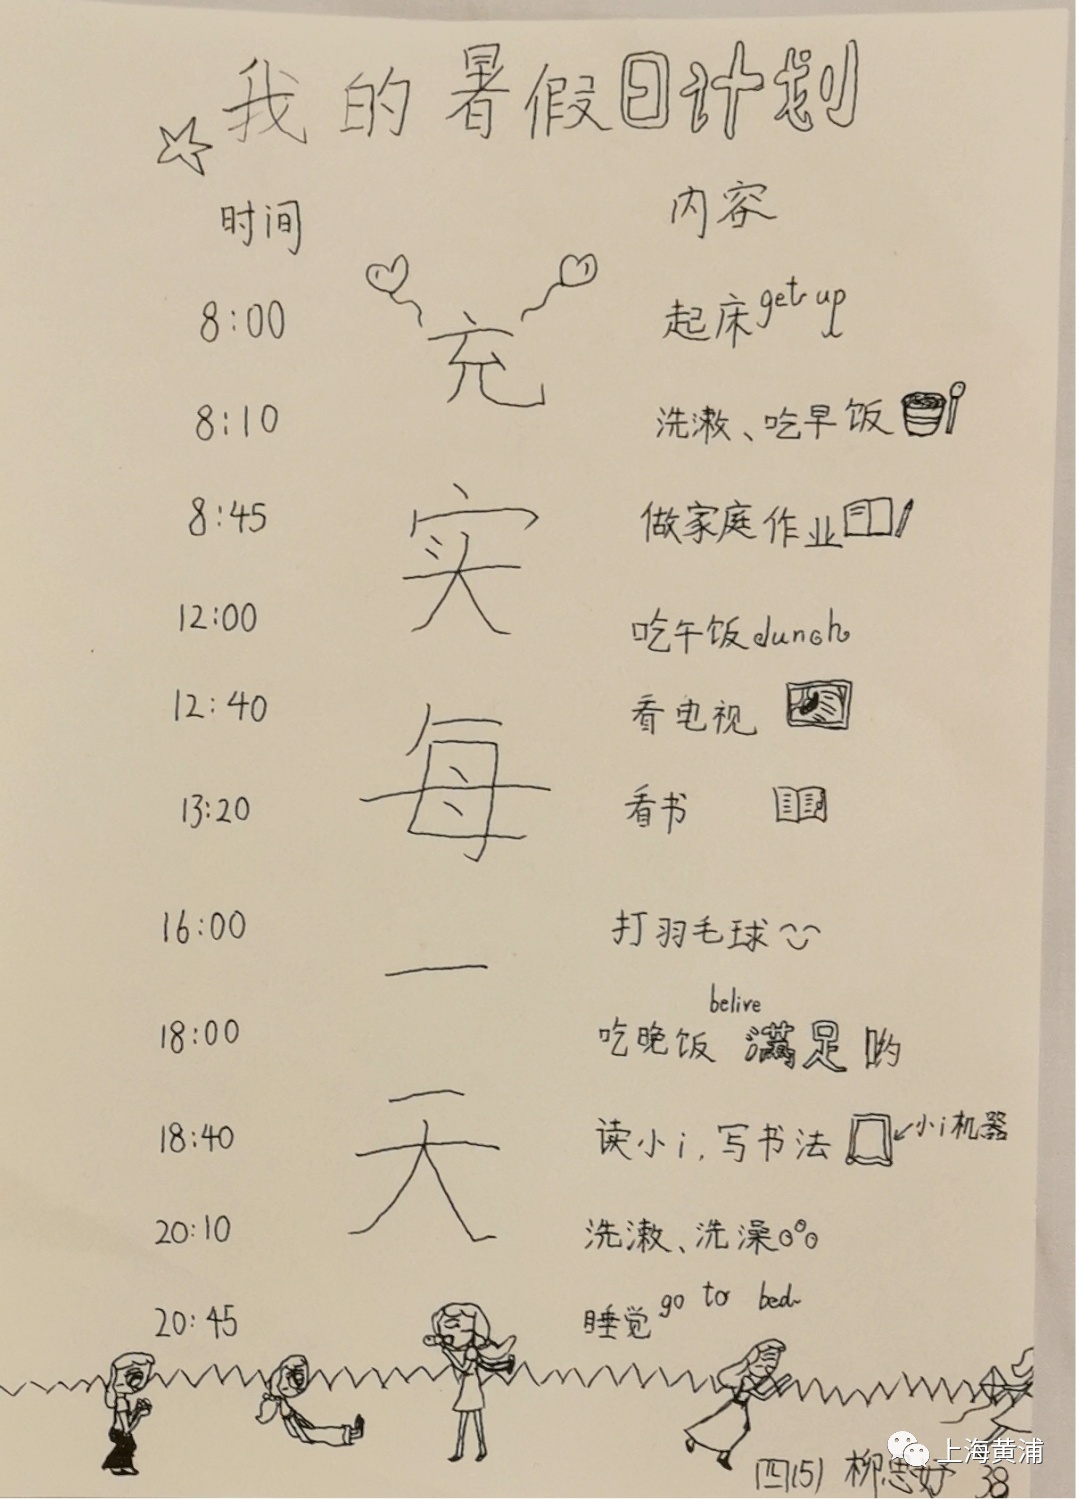 我的暑假日计划
时间 内容
8:00 起床 get up
8:10 洗漱、吃早饭
8:45 做家庭作业
12:00 吃午饭 lunch
12:40 看电视
13:20 看书
16:00 打羽毛球
belive
18:00 吃晚饭 满足哟
18:40 读小i,写书法 小i机器
20:10 洗漱、洗澡
20:45 睡觉 go to bed
充
实
每
一
天
四(5) 柳思妤 38
上海黄浦